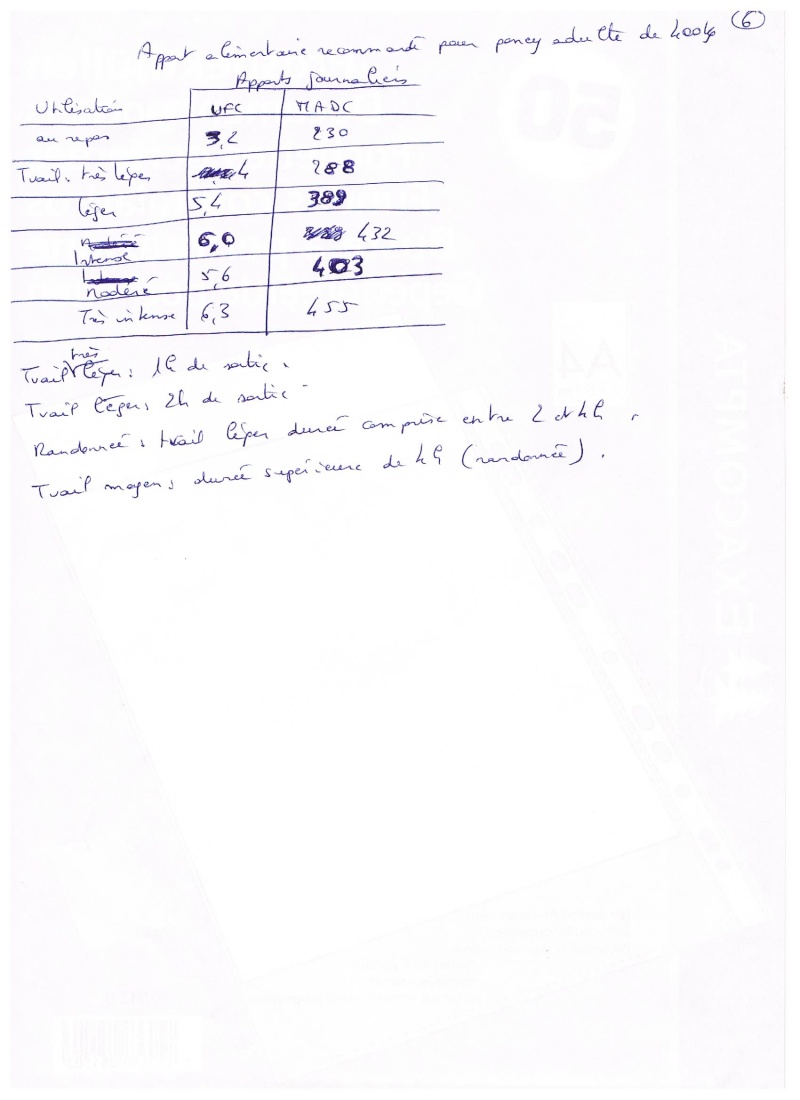 6
Apport alimentaire recommandé pour poney adulte de 400kg
Apports journaliers
Utilisation UFC MADC
au repos 3,2 230
Travail : très léger 4 288
léger 5,4 389
Intense 6,0 432
Modéré 5,6 403
Très intense 6,3 455
Travail très léger : 1h de sortie.
Travail léger : 2h de sortie
Randonnée : travail léger durée comprise entre 2 et 4h.
Travail moyen : durée supérieure de 4h (randonnée).
50
A4
EXACOMPTA